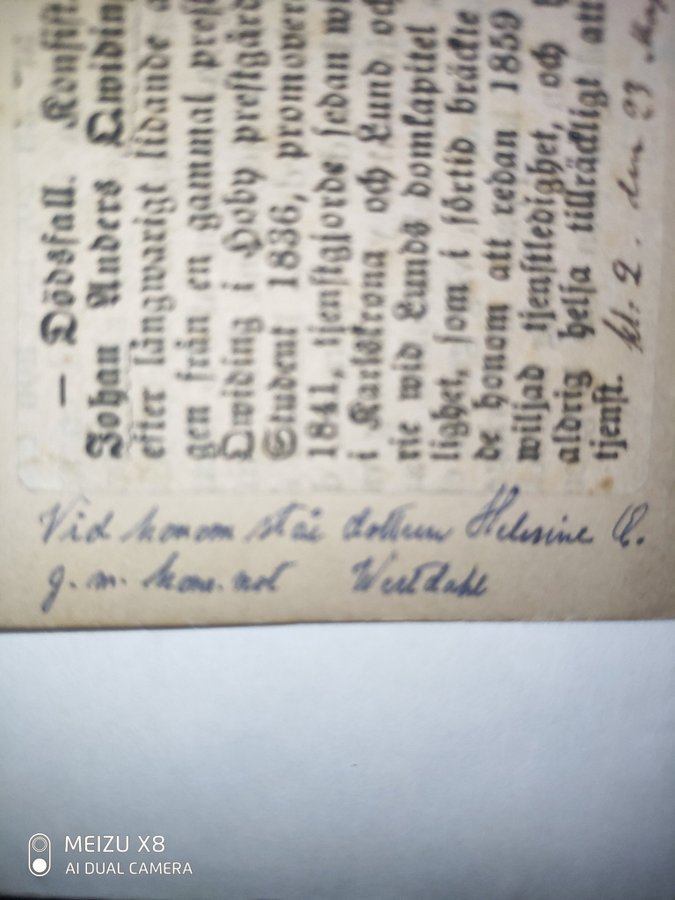 — Dödsfall. Konsist.
Johan Anders Qwiding
efter långwarigt lidande a
gen från en gammal prest
Qwiding i Hoby prestgård
Student 1836, promover
1841, tjenstgjorde sedan wi
i Karlskrona och Lund oc
rie wid Lunds domkapitel
lighet, som i förtid bräckte
de honom att redan 1859
wiljad tjenstledighet, och h
aldrig helsa tillräckligt att
tjenst.
kl. 2. den 23 Maj
Vid honom står dottern Helusine Q.
g. m. kons. not Westdahl
MEIZU X8
AI DUAL CAMERA